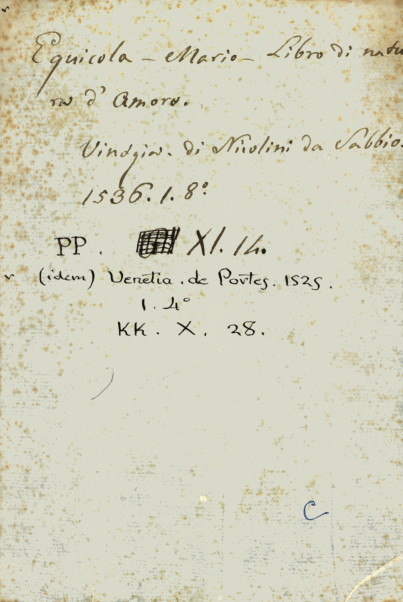 Equicola - Mario - Libro di natu
ra d' Amore.
Vinegia. di Nicolini da Sabbio.
1536. 1. 8°.
PP. XI. 14.
(idem) Venetia. de Portes. 1525.
1. 4°
KK. X. 28.
C